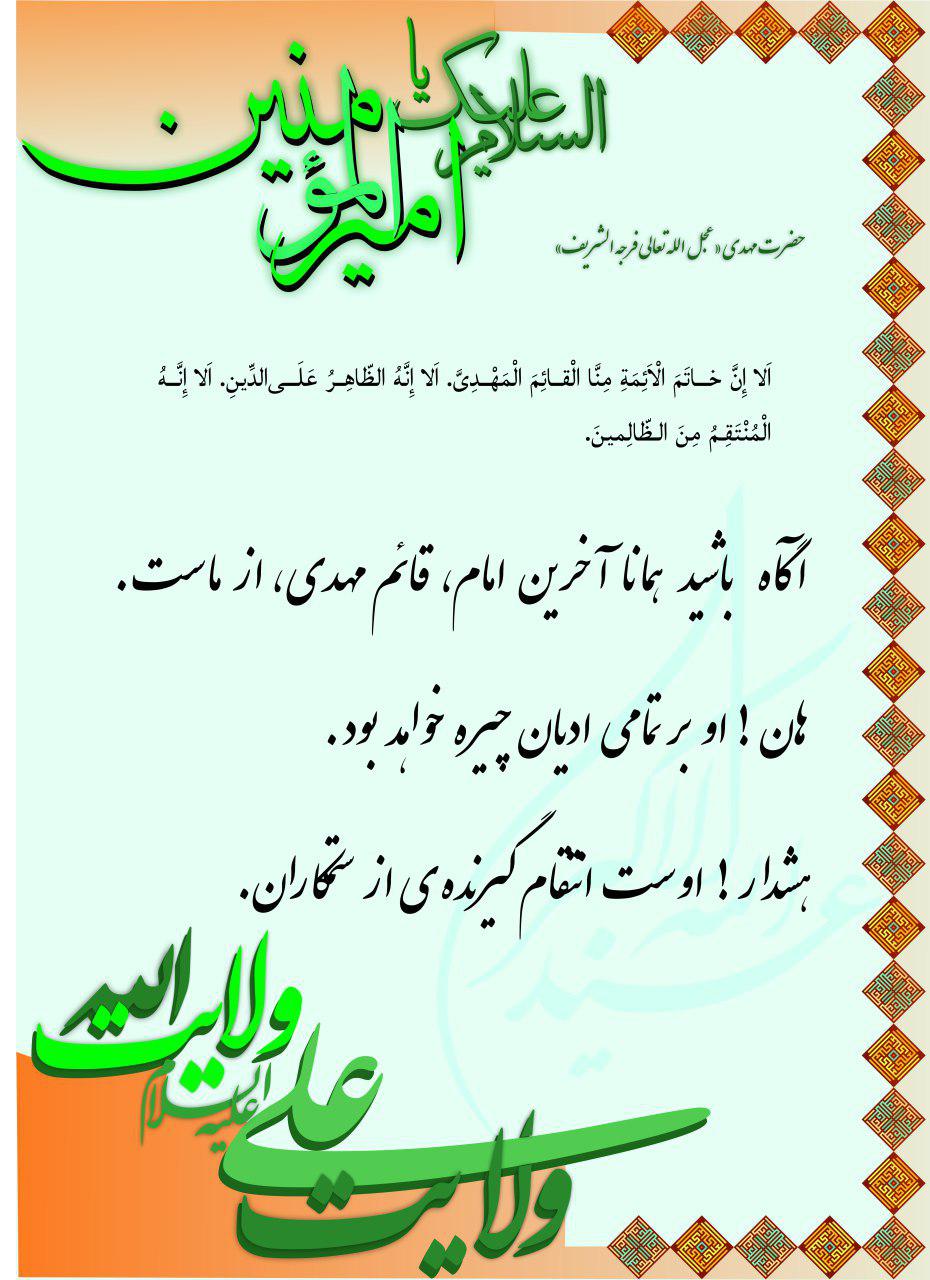 السلام علیک یا
امیرالمؤمنین
حضرت مهدی «عجل الله تعالی فرجه الشریف»
اَلا إِنَّ خـاتَمَ الْاَئِمَةِ مِنَّا الْقـائِمَ الْمَهْـدِیَّ. اَلا إِنَّهُ الظّاهِـرُ عَلَـی‌الدِّینِ. اَلا إِنَّـهُ
الْمُنْتَقِـمُ مِنَ الـظّالِمینَ.
آگاه باشید همانا آخرین امام، قائم مهدی، از ماست.
هان ! او بر تمامی ادیان چیره خواهد بود.
هشدار ! اوست انتقام گیرنده‌ی از ستمکاران.
ولایت الله
ولایت علی علیه السلام